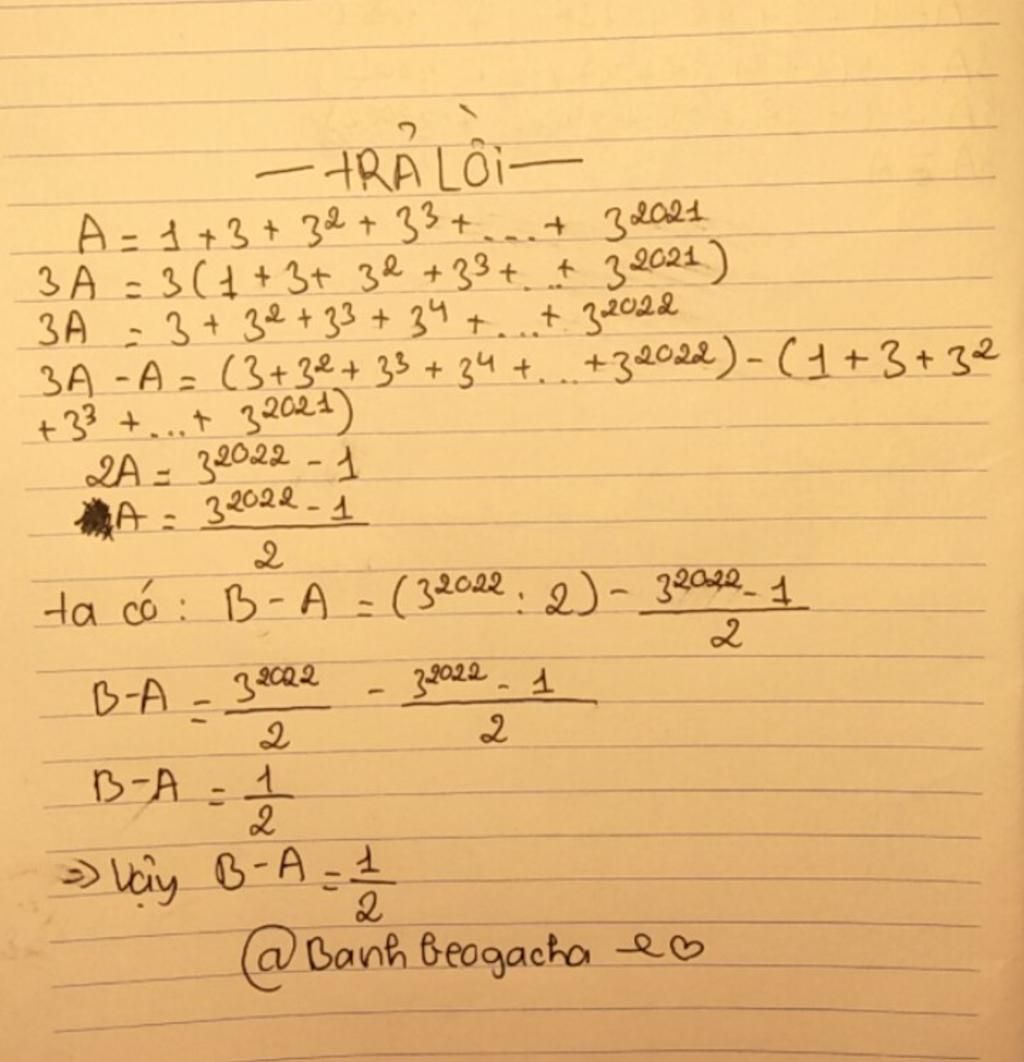 — TRẢ LỜI —
A = 1 + 3 + 3² + 3³ + .... + 3²⁰²¹
3A = 3(1 + 3 + 3² + 3³ + ... + 3²⁰²¹)
3A = 3 + 3² + 3³ + 3⁴ + ... + 3²⁰²²
3A - A = (3 + 3² + 3³ + 3⁴ + ... + 3²⁰²²) - (1 + 3 + 3²
+ 3³ + ... + 3²⁰²¹)
2A = 3²⁰²² - 1
A = (3²⁰²² - 1)/2
ta có : B - A = (3²⁰²² : 2) - (3²⁰²² - 1)/2
B - A = 3²⁰²²/2 - (3²⁰²² - 1)/2
B - A = 1/2
=> Vậy B - A = 1/2
@Banh beogacha